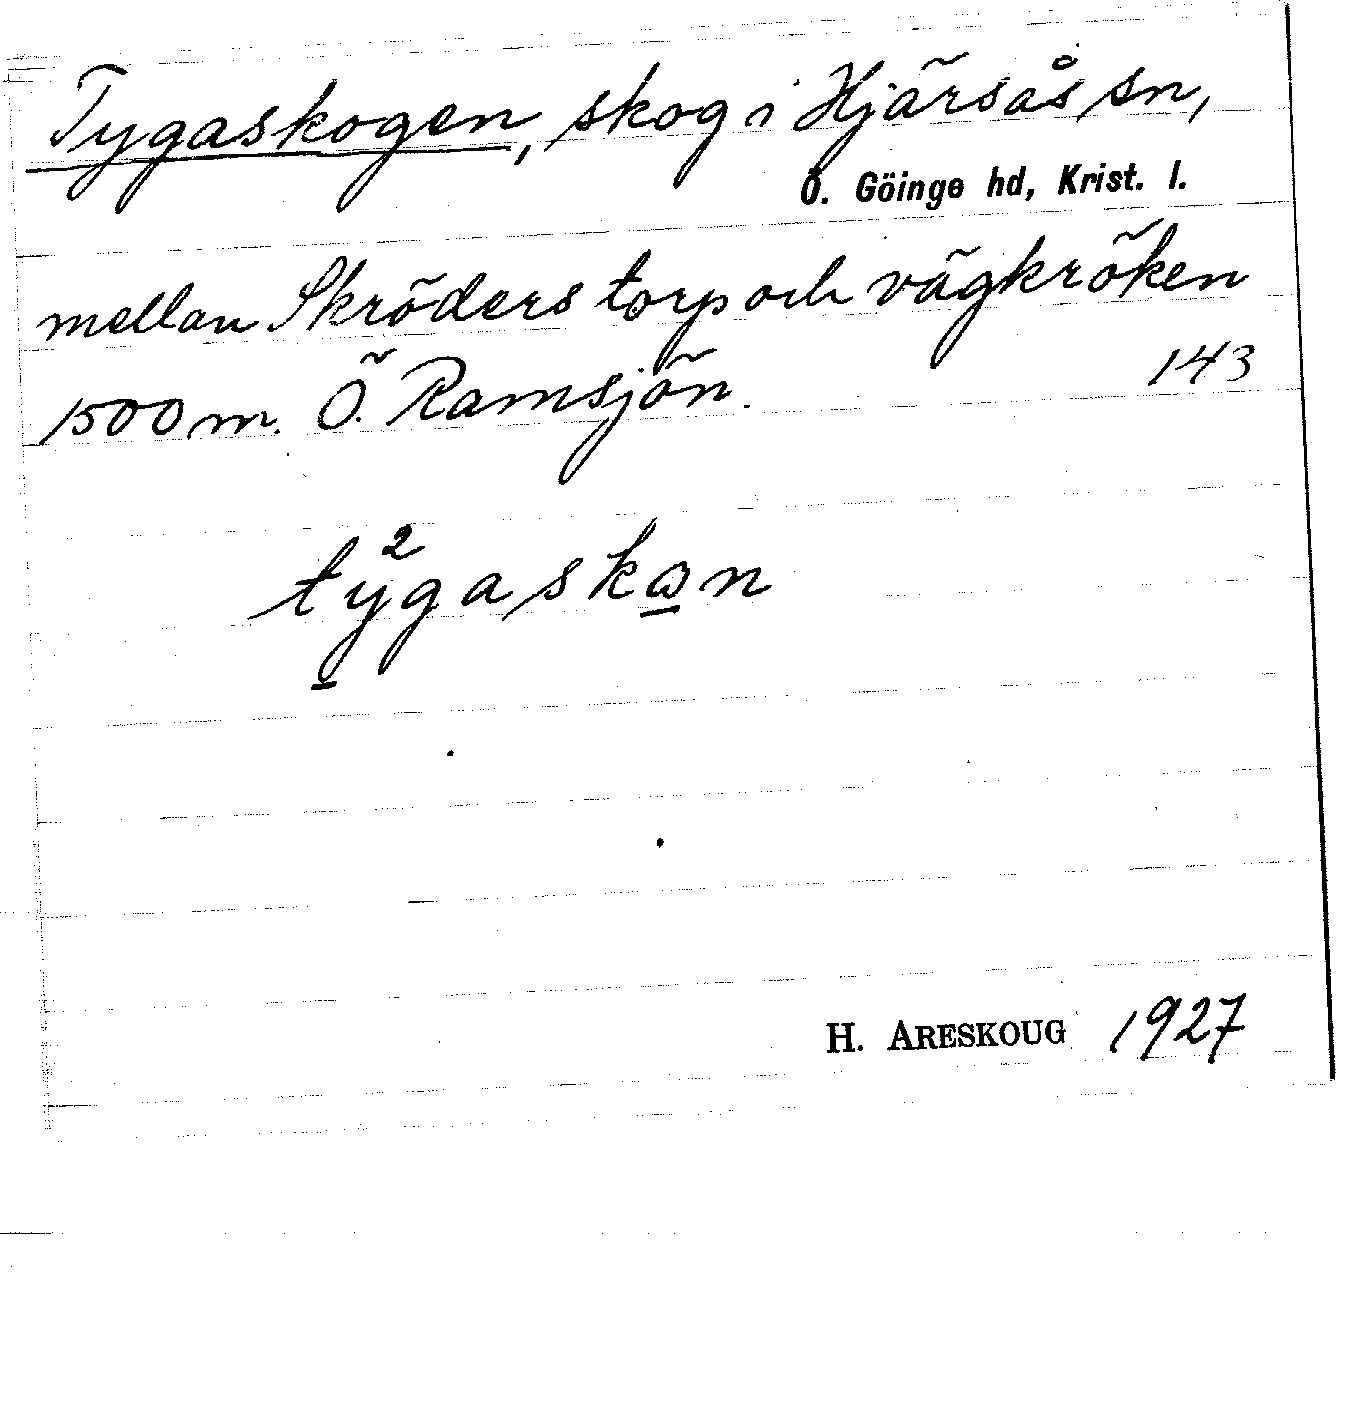 Tygaskogen, skog i Hjärsås sn,
Ö. Göinge hd, Krist. l.
mellan Skröders torp och vägkröken
1500 m. Ö. Ramsjön. 143
2
tygaskɷn
H. ARESKOUG 1927